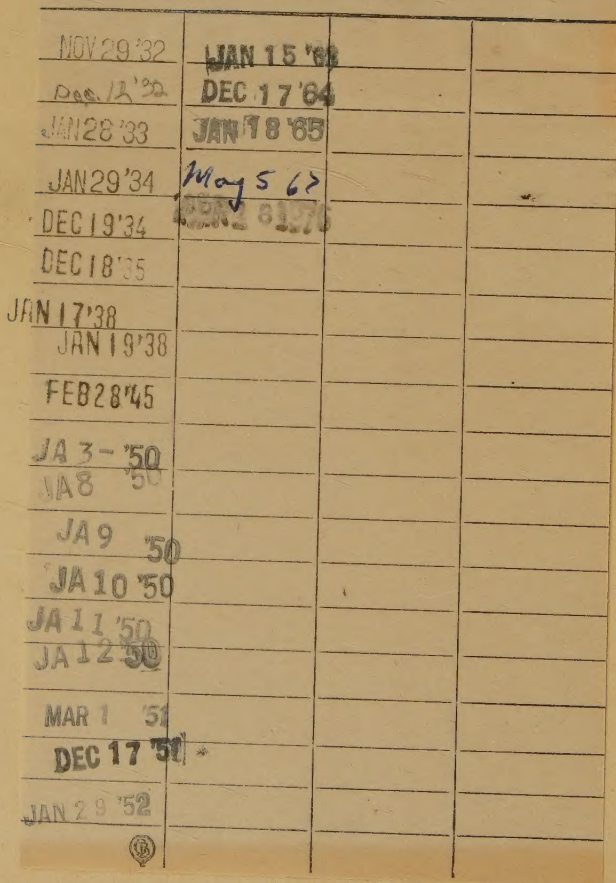 NOV 29 '32
Dec. 12 '32
JAN 28 '33
JAN 29 '34
DEC 19 '34
DEC 18 '35
JAN 17 '38
JAN 19 '38
FEB 28 '45
JA 3 - '50
JA 8 '50
JA 9 '50
JA 10 '50
JA 11 '50
JA 12 '50
MAR 1 '51
DEC 17 '51
JAN 29 '52
JAN 15 '63
DEC 17 '64
JAN 18 '65
May 5 67